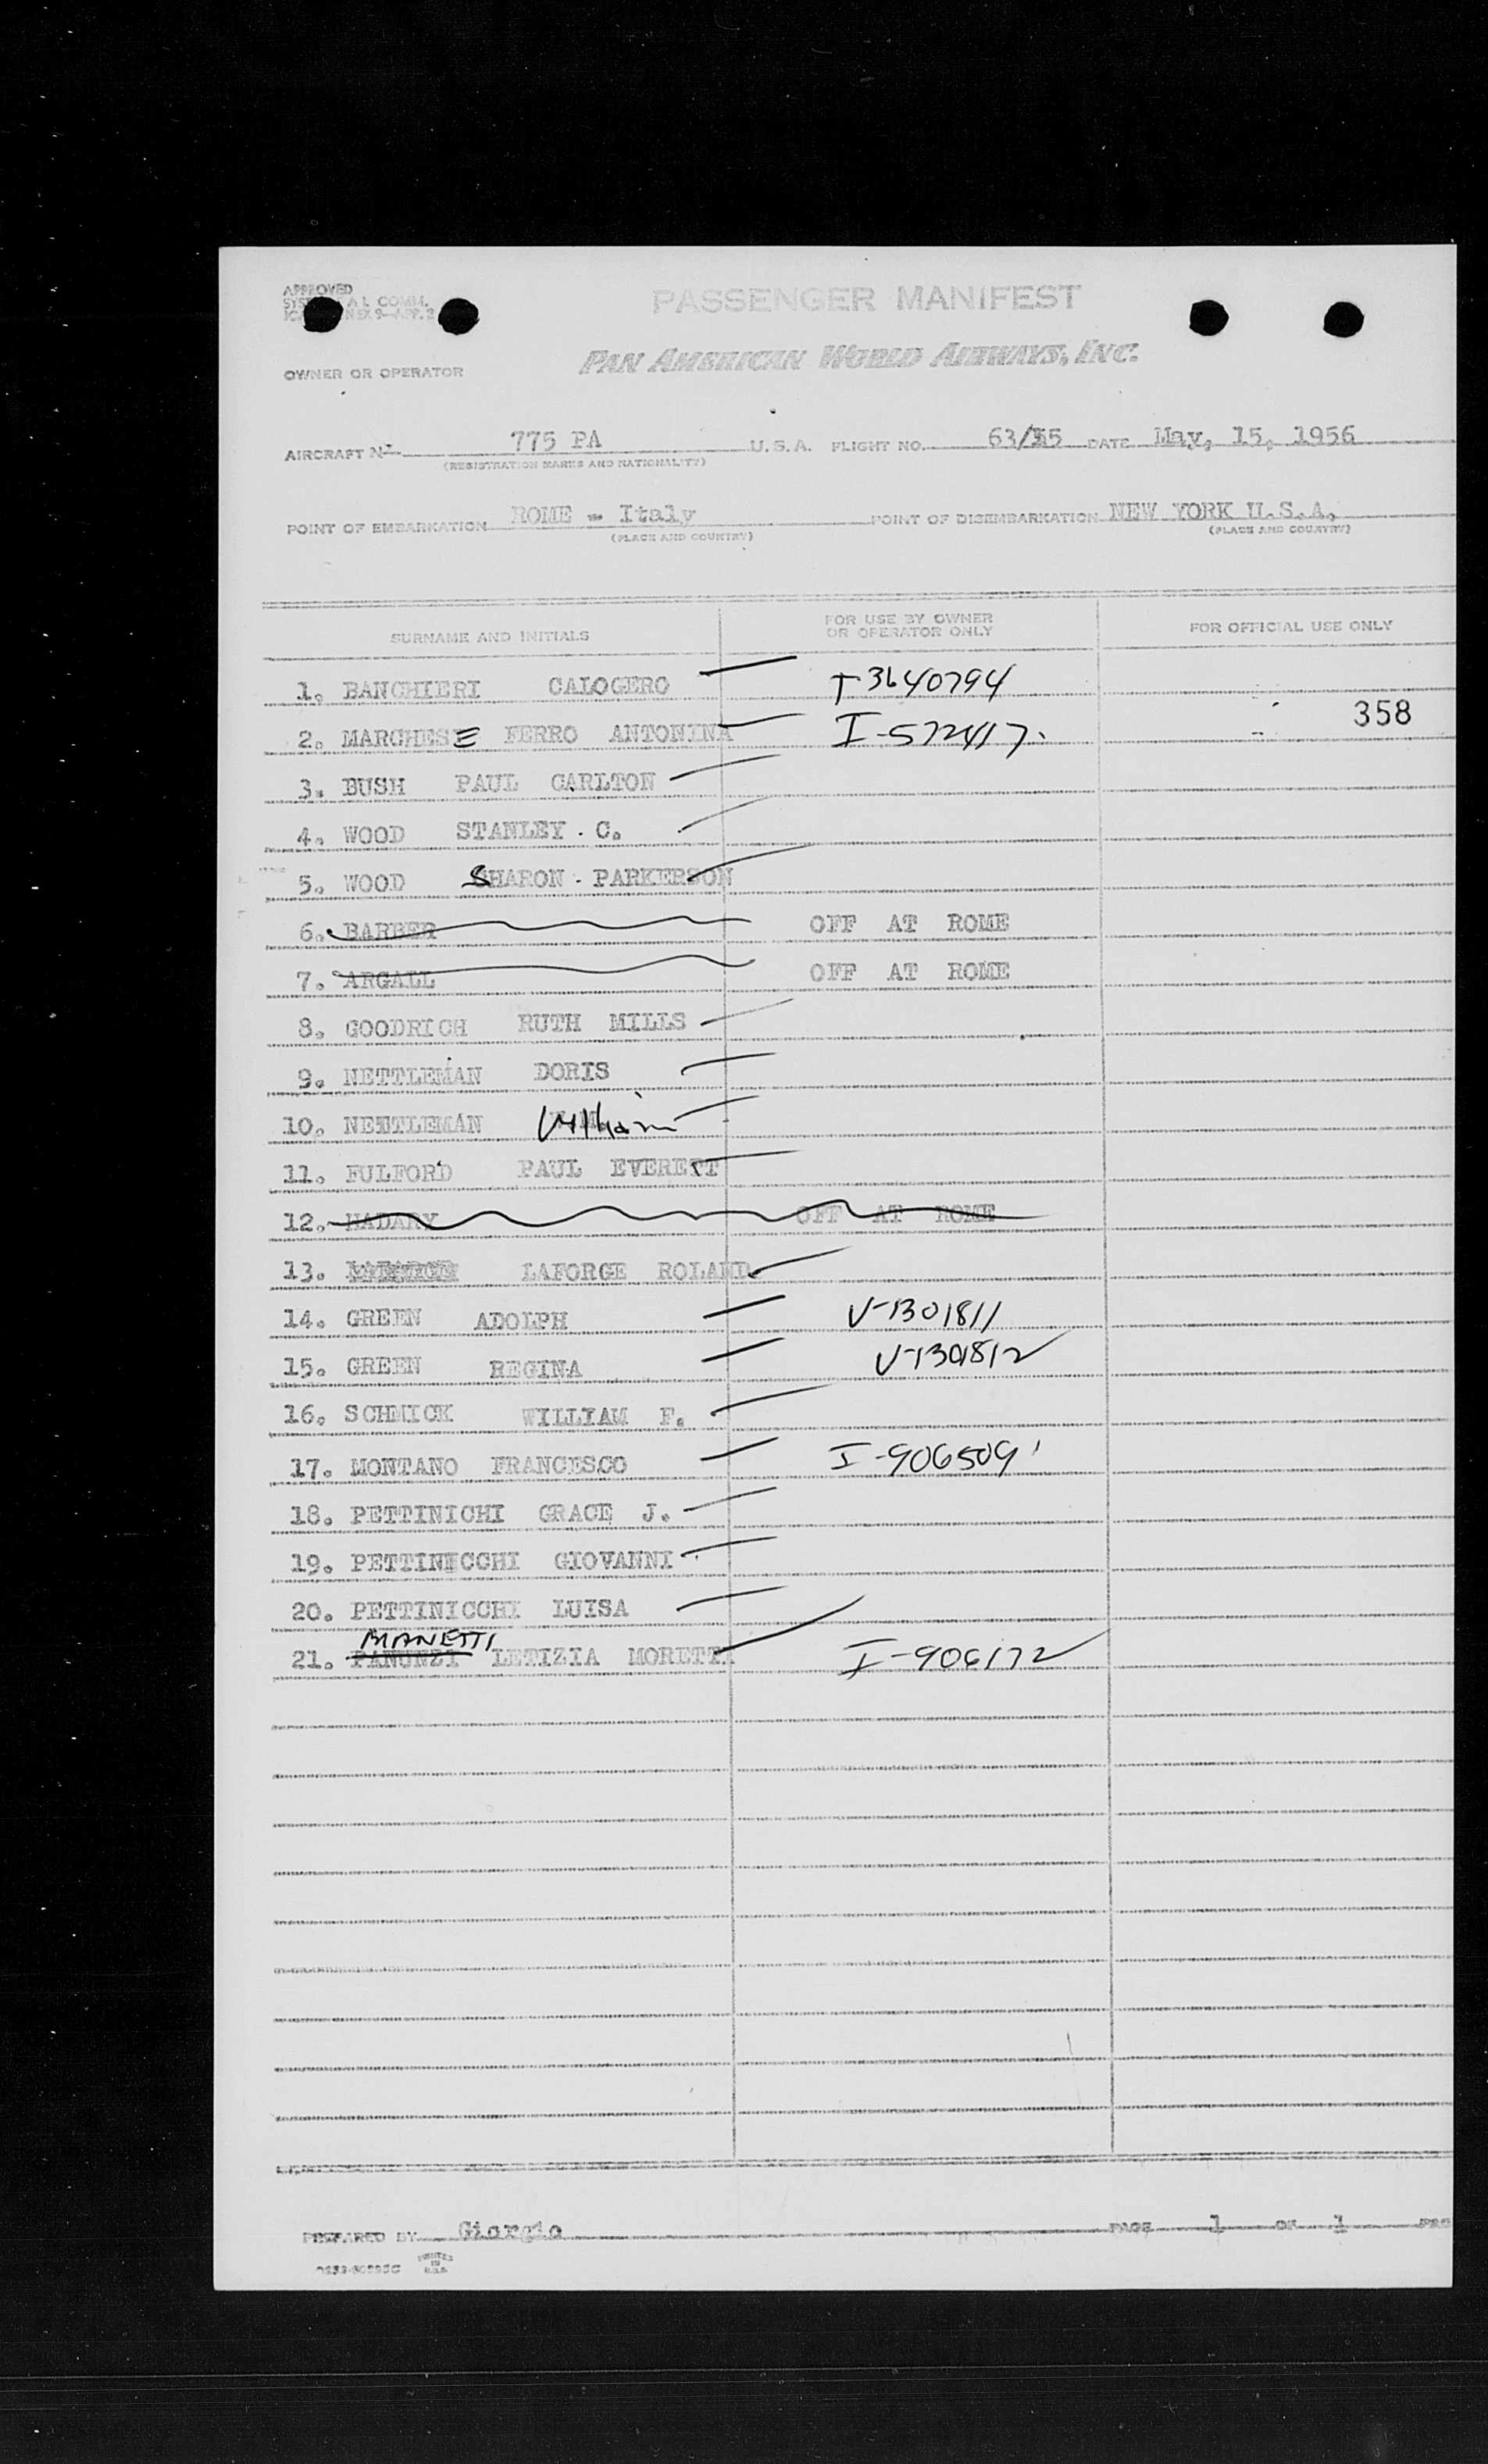 APPROVED
PASSENGER MANIFEST
PAN AMERICAN WORLD AIRWAYS, INC.
OWNER OR OPERATOR
AIRCRAFT N- 775 PA U.S.A. FLIGHT NO. 63/15 DATE May, 15, 1956
(REGISTRATION MARKS AND NATIONALITY)
POINT OF EMBARKATION ROME - Italy POINT OF DISEMBARKATION NEW YORK U.S.A.
(PLACE AND COUNTRY) (PLACE AND COUNTRY)
SURNAME AND INITIALS FOR USE BY OWNER OR OPERATOR ONLY FOR OFFICIAL USE ONLY
1. BANCHIERI CALOGERO T-3640794
358
2. MARCHESE FERRO ANTONINA I-572417.
3. BUSH PAUL CARLTON
4. WOOD STANLEY . C.
5. WOOD SHARON . PARKERSON
6. BARBER OFF AT ROME
7. ARGALL OFF AT ROME
8. GOODRICH RUTH MILLS
9. NETTLEMAN DORIS
10. NETTLEMAN William
11. FULFORD PAUL EVERETT
12. HADARY OFF AT ROME
13. LAFORGE ROLAND
14. GREEN ADOLPH V-1301811
15. GREEN REGINA V-1301812
16. SCHMICK WILLIAM F.
17. MONTANO FRANCESCO I-906509
18. PETTINICHI GRACE J.
19. PETTINICCHI GIOVANNI
20. PETTINICCHI LUISA
MANETTI
21. PANUNZI LETIZIA MORETTA I-906172
PREPARED BY Giorgio PAGE 1 OF 1
PRINTED IN U.S.A.